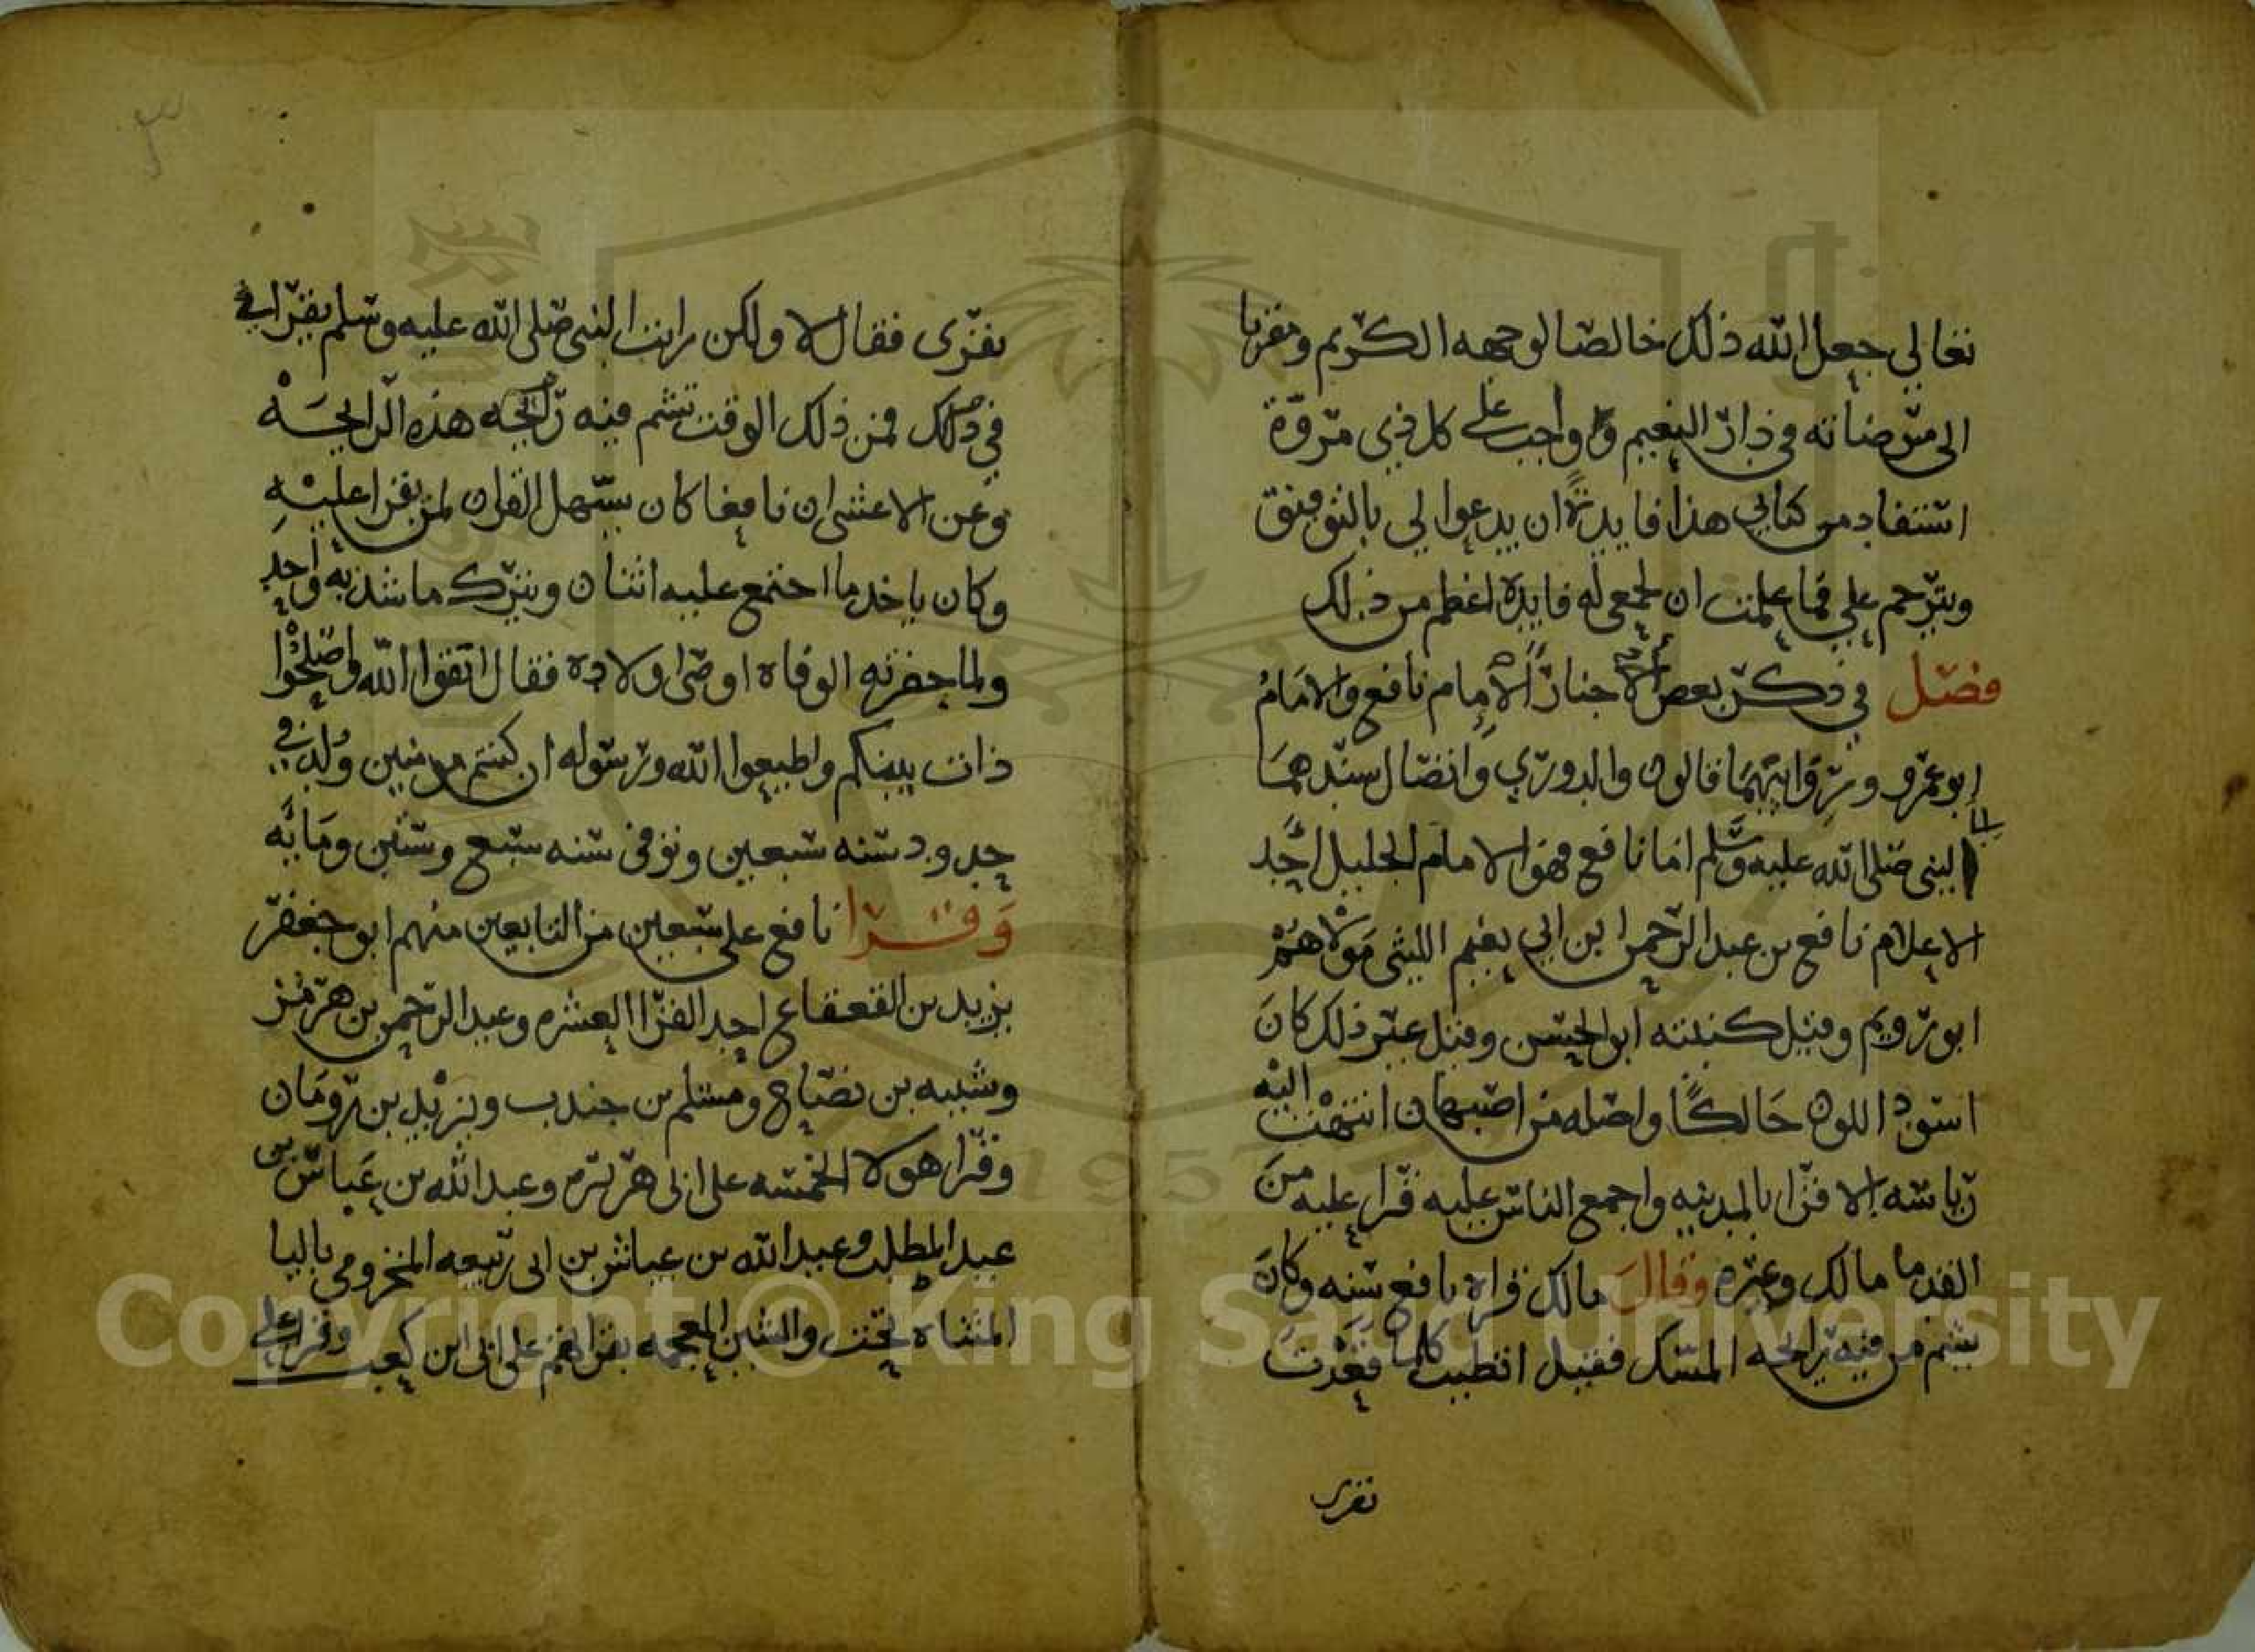 تعالي جعل الله ذلك خالصا لوجهه الكريم ومقربا
الى مرضاته في دار النعيم وواجب على كل ذي مروّة
استفاد من كتابي هذا فايدةً ان يدعوا لي بالتوفيق
ويترحم علي فما علمت ان لجمعي له فايدة اعظم من ذلك
فصل في ذكر بعض اخبار الامام نافع والامام
ابو عمرو وروايتهما قالون والدوري واتصال سندهما
الى النبي صلى الله عليه وسلم اما نافع فهو الامام الجليل احد
الاعلام نافع بن عبد الرحمن ابن ابي نعيم الليثي مولاهم
ابو رويم وقيل كنيته ابو الحسن وقيل غير ذلك كان
اسود اللون حالكًا واصله من اصبهان انتهت اليه
رياسه الاقرا بالمدينه واجمع الناس عليه قرا عليه من
القدما مالك وغيره وقال مالك قراه نافع سنه وكان
يشم من فيه رايحه المسك فقيل اتطيب كلما قعدت
تقرى
تقرى فقال لا ولكن رايت النبي صلى الله عليه وسلم يقرا في
في ذلك فمن ذلك الوقت تشم فيه رايحه هذه الرايحه
وعن الاعشى ان نافعا كان يسهل القران لمن يقرا عليه
وكان ياخد ما اجتمع عليه اثنان ويترك ما شذ به واحد
ولما حضرته الوفاه اوصى اولاده فقال اتقوا الله واصلحوا
ذات بينكم واطيعوا الله ورسوله ان كنتم مومنين ولد في
حدود سنه سبعين وتوفى سنه سبع وستين ومايه
وقرا نافع على سبعين من التابعين منهم ابو جعفر
يزيد بن القعقاع احد القرا العشره وعبد الرحمن بن هرمز
وشيبه بن نصاح ومسلم بن جندب ويزيد بن رومان
وقرا هولا الخمسه على ابى هريره وعبد الله بن عباس بن
عبد المطلب وعبد الله بن عياش بن ابى ربيعه المخزومي باليا
المثناه تحت والشين المعجمه بقراتهم على ابى ابن كعب وقرا على
Copyright © King Saud University
1957